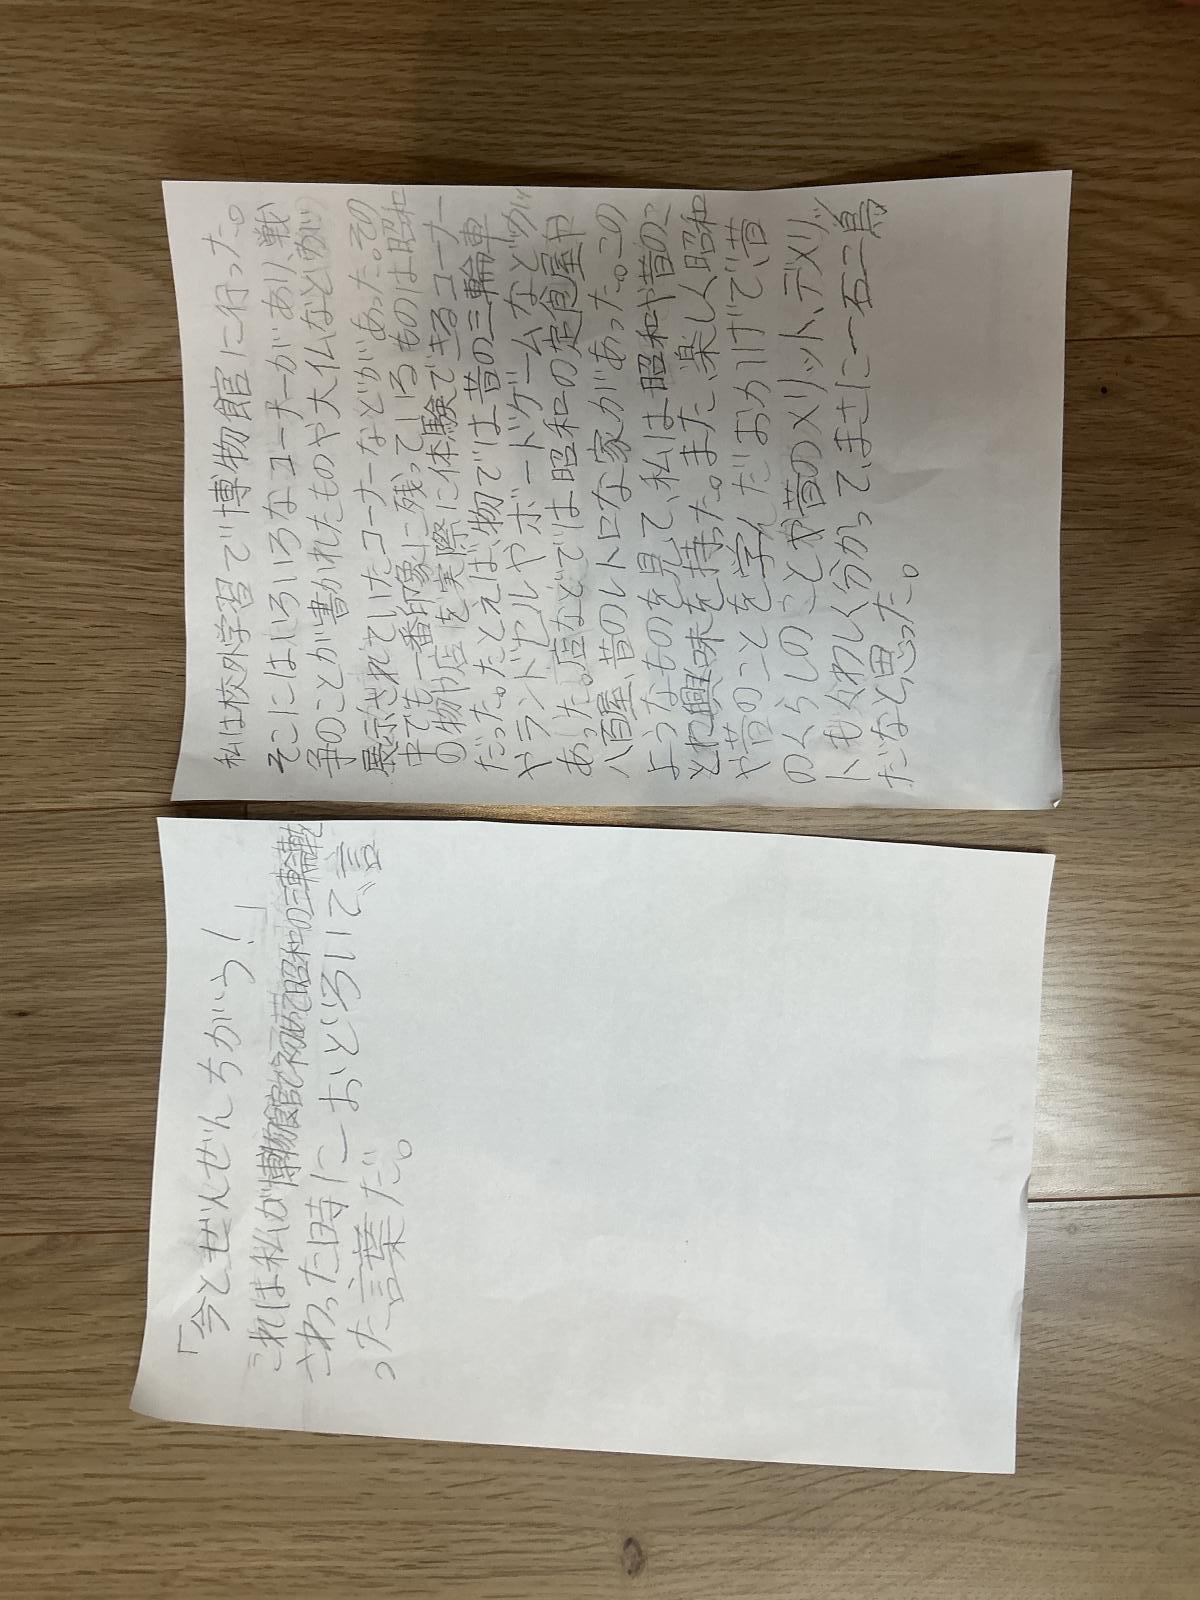 「今とぜんぜんちがう！」
これは私が博物館で初めて昭和の三輪車に
さわった時に、おどろいて、言
った言葉だ。
私は校外学習で博物館に行った。
そこにはいろいろなコーナーがあり、戦
争のことが書かれたものや大仏などが
展示されていたコーナーなどがあった。その
中でも一番印象に残っているものは昭和
の物や店を実際に体験できるコーナー
だった。たとえば、物では昔の三輪車
やランドセルやボードゲームなどが
あった。店などでは昭和の定食屋や
八百屋、昔のレトロな家があった。この
ようなものを見て、私は昭和や昔のこ
とに興味を持った。また、楽しく昭和
や昔のことを学んだおかげで、昔
のくらしのことや昔のメリット、デメリッ
トもくわしく分かって、まさに一石二鳥
だなと思った。